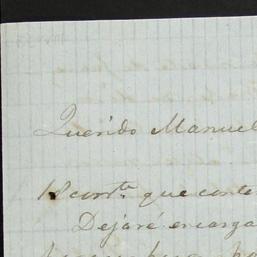 Querido Manuel
18 corr.te que conte
Dejaré encarga